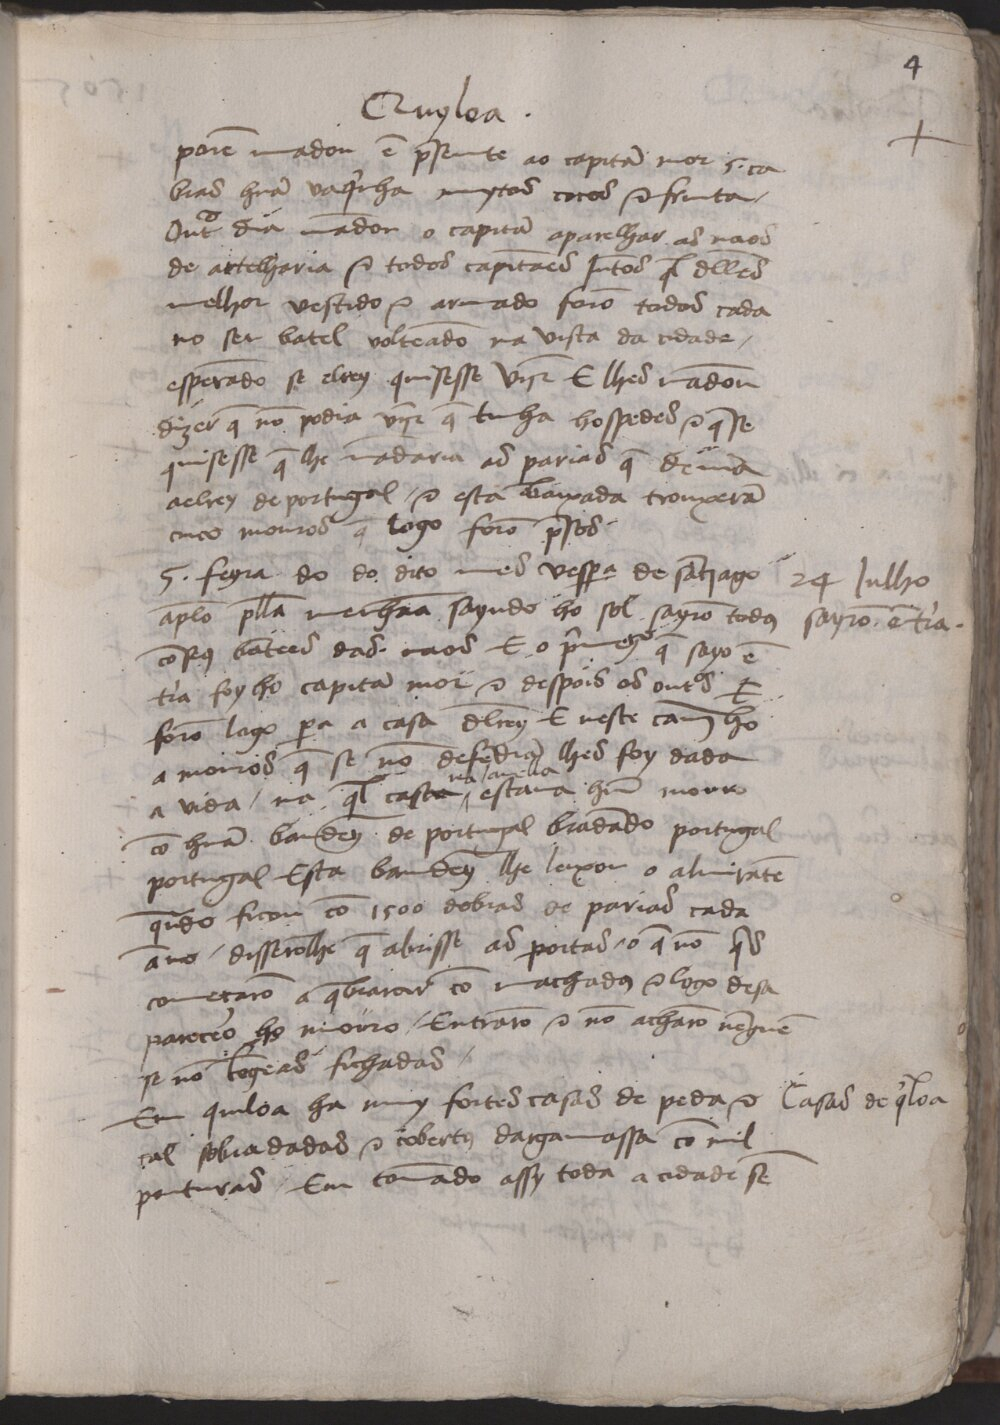 4
Quyloa .
porẽ mandou ẽ p̃sente ao capitã mor 5. ca
bras hũa vaq̃nha muytos cocos & fruita /
Outº dia mãdou o capitã aparelhar as naos
de artelharia & todos capitães Jũtos q̃l dlles
melhor vestido & armado forõ todos cada
no seu batel volteãdo na vista da cidade /
esperãdo se elrey quisesse vijr E lhes mãdou
dizer q̃ nõ podia vijr q̃ tinha hospedes & q̃ se
quisesse q̃ lhe mãdaria as parias q̃ deuia
aelrey de portugal / & esta ẽbaixada trouxerã
cinco mouros q̃ logo forõ p̃sos
5. feyra do do dito mes vespa de sãtiago
aplo pella menhãa sayndo ho sol sayrõ todos
cõ os batees das naos E o p̃meyº q̃ sayo ẽ
tr̃a foy ho capitã mor & despois os outºs E
forõ logo pera a casa dlrey E neste camjho
a mouros q̃ se nõ defediã lhes foy dada
a vida / na q̃l casa na janella estaua hũ mouro
cõ hũa bandeyª de portugal bradando portugal
portugal Esta bandeyª lhe leixou o almirãte
quãdo ficou cõ 1500 dobras de parias cada
ãno / disserõlhe q̃ abrisse as portas / o q̃ nõ q̃s
começarõ a q̃brarar cõ machados & logo desa
pareceo ho mouro / Entrarõ & nõ acharõ nẽguẽ
se nõ logeas fichadas /
Em quiloa ha muy fortes casas de peda &
cal sobradadas & cobertas dargamassa cõ mil
pinturas / Em tomãdo assy toda a cidade sẽ
24 Julho
sayrõ. ẽ tr̃a.
Casas de q̃loa